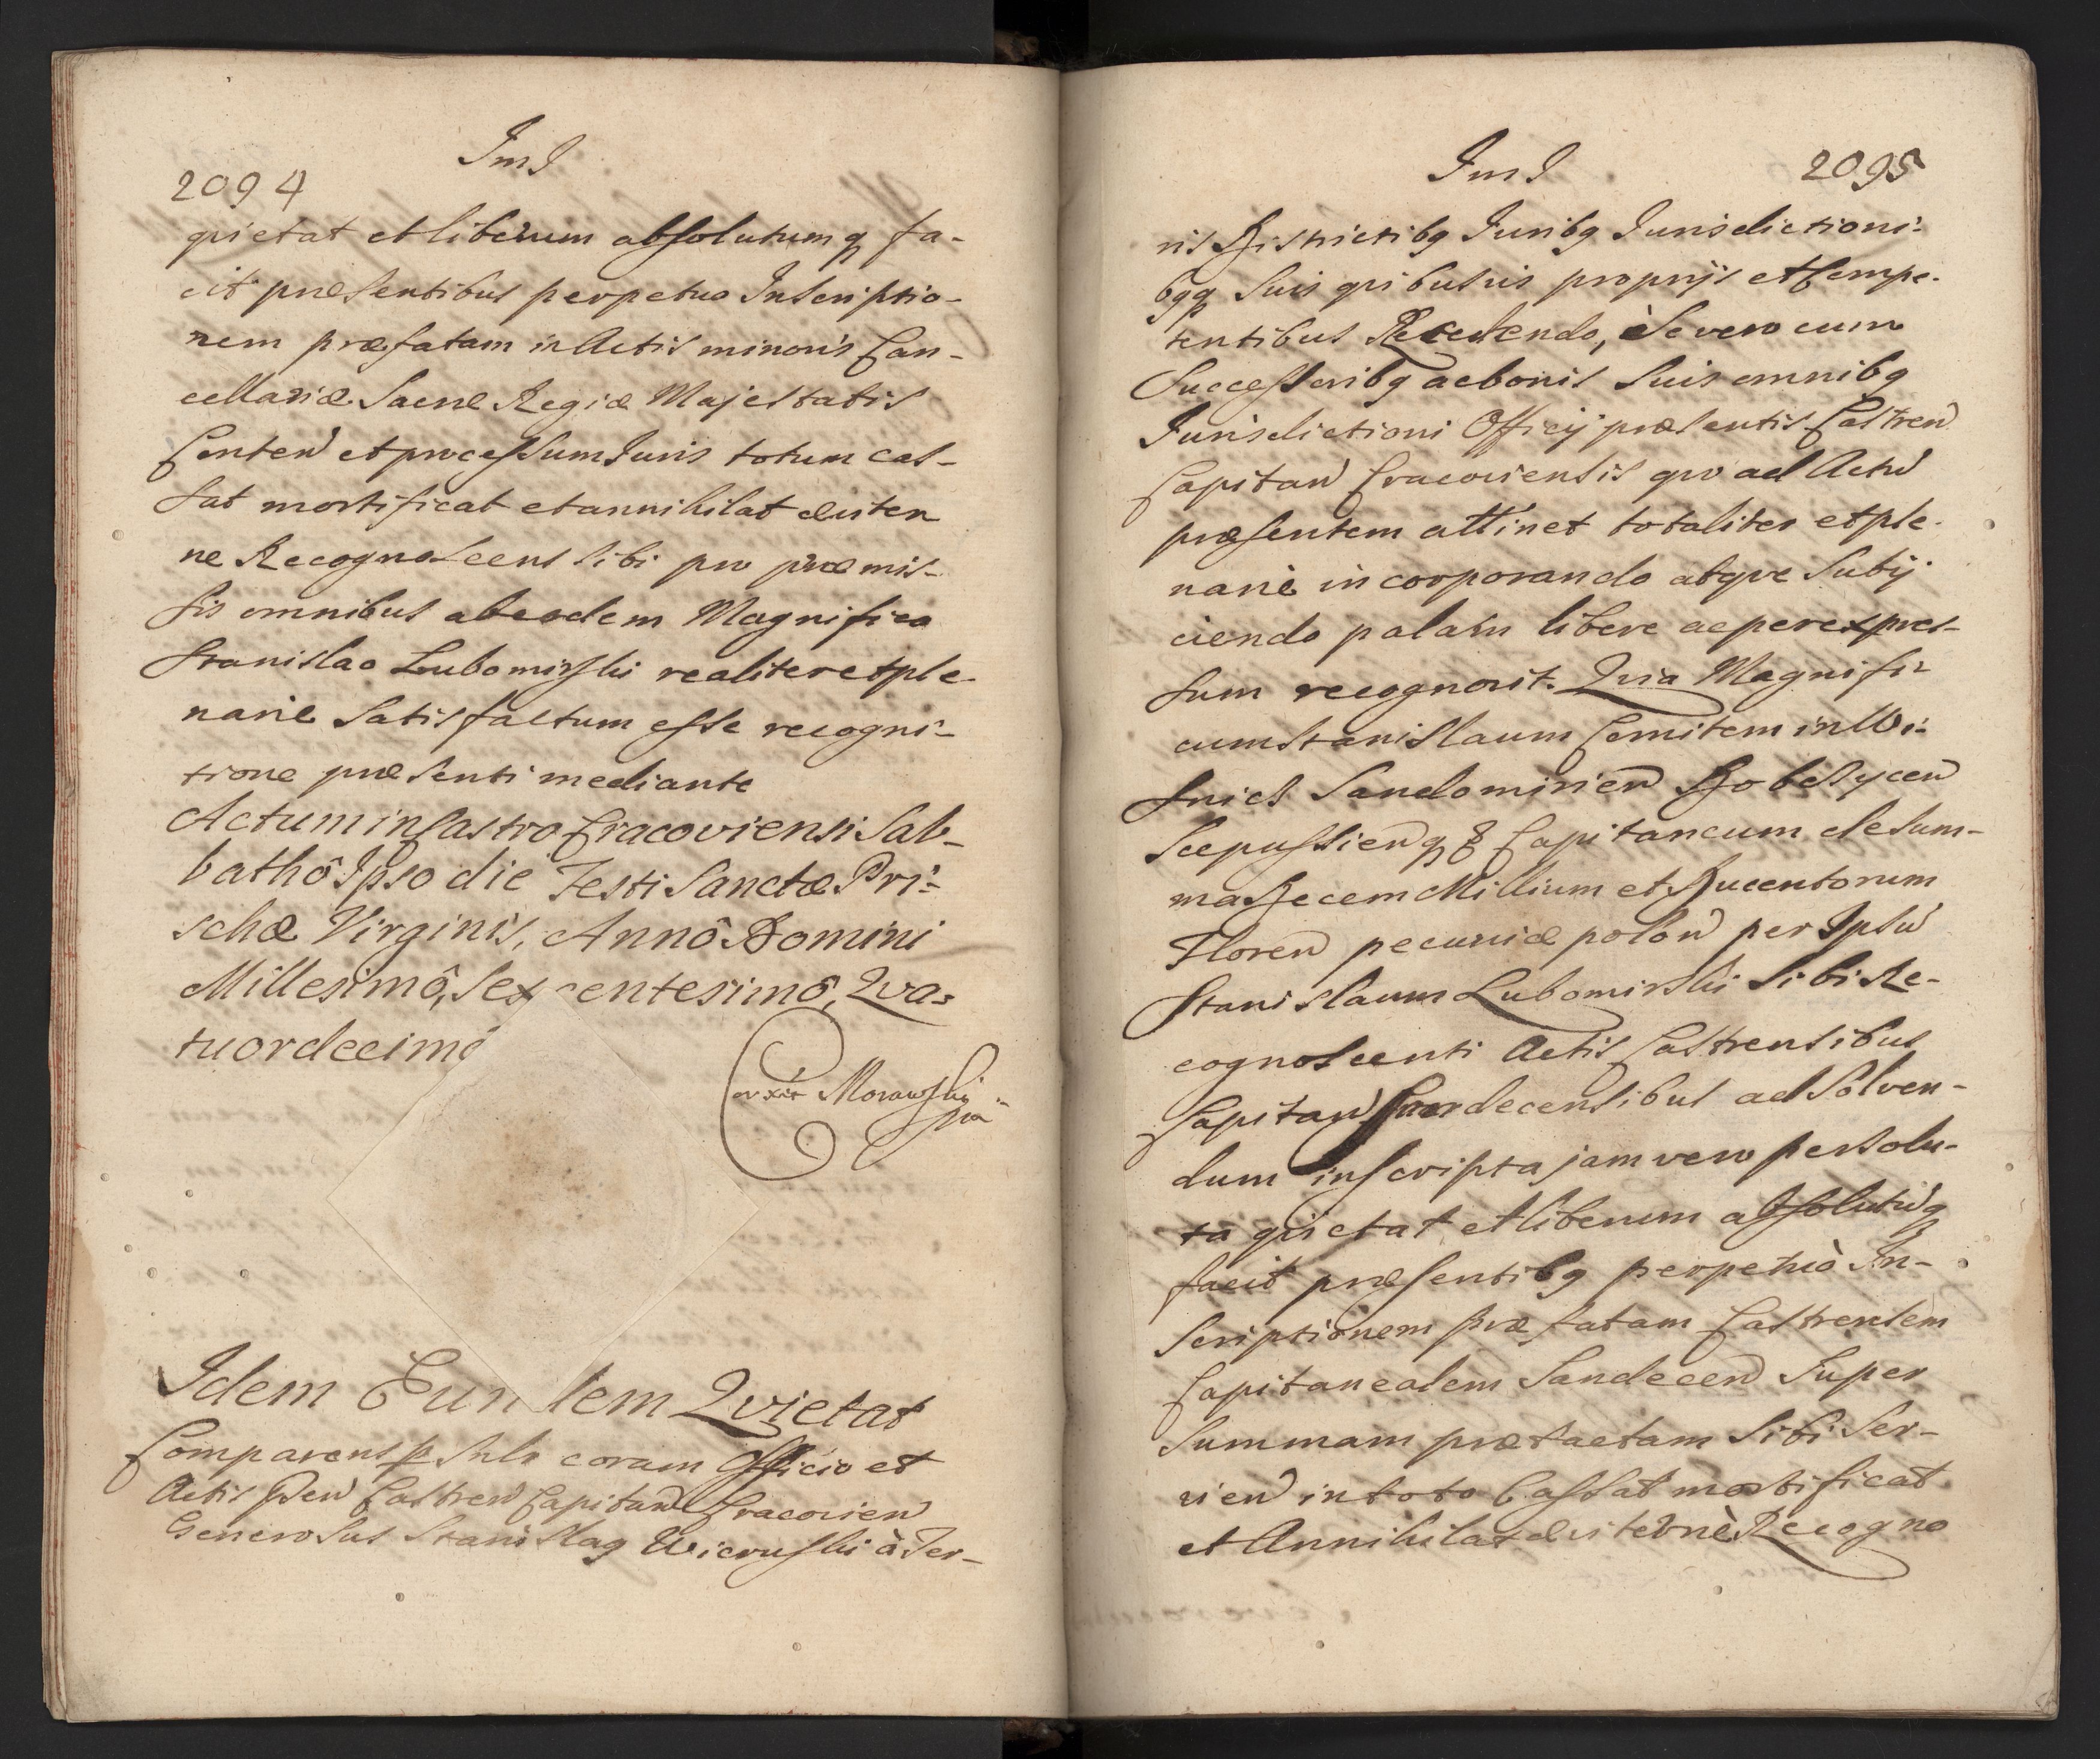 2094
JmJ
qvietat et liberum absolutumq fa-
cit præsentibus perpetuo Inscriptio-
nem præfatam in Actis minoris Can-
cellariæ Sacræ Regiæ Majestatis
Conten et processum Juris totum cas-
sat mortificat et annihilat æviter
ne Recognoscens sibi pro præmis-
sis omnibus ab eodem Magnifico
Stanislao Lubomirski realiter et ple-
narie Satisfactum esse recogni-
tione præsenti mediante
Actum in Castro Cracoviensi Sab-
bathô Ipso die Festi Sanctæ Pri-
schæ Virginis, Annô Domini
Millesimô, Sexcentesimô, Qva-
tuordecimo
Corxit Morawski
Idem Eundem Qvietat
Comparens coram Officio et
Actis Pren Castren Capitan Cracovien
Generosus Stanislaq Wieruski à Ter-
JmJ
2095
ris Districtibq Juribq Jurisdictioni-
bqq Suis qvibusvis proprijs et Compe-
tentibus Recedendo, Se vero cum
Successoribq ac bonis Suis omnibq
Jurisdictioni Officij præsentis Castren
Capitan Cracoviensis qvo ad Actu
præsentem attinet totaliter et ple-
nariè incorporando atqve Subij
ciendo palam libere ac per expres-
sum recognovit. Qvia Magnifi-
cum Stanislaum Comitem in Wi-
snicz Sandomirien Dobczycen
Scepussienq & Capitaneum de Sum-
ma Decem Millium et Ducentorum
Floren pecuniæ polon per Ipsu
Stanislaum Lubomirski Sibi Re-
cognoscenti Actis Castrensibus
Capitan Sandecensibus ad Solven-
dum inscripta jam vero persolu-
ta qvietat et liberum absolutuq
facit præsentibq perpetuò In-
scriptionem præfatam Castrensem
Capitanealem Sandecen Super
Summam prætactam Sibi Ser-
vien in toto Cassat mortificat
et Annihilat æviternè Recogno